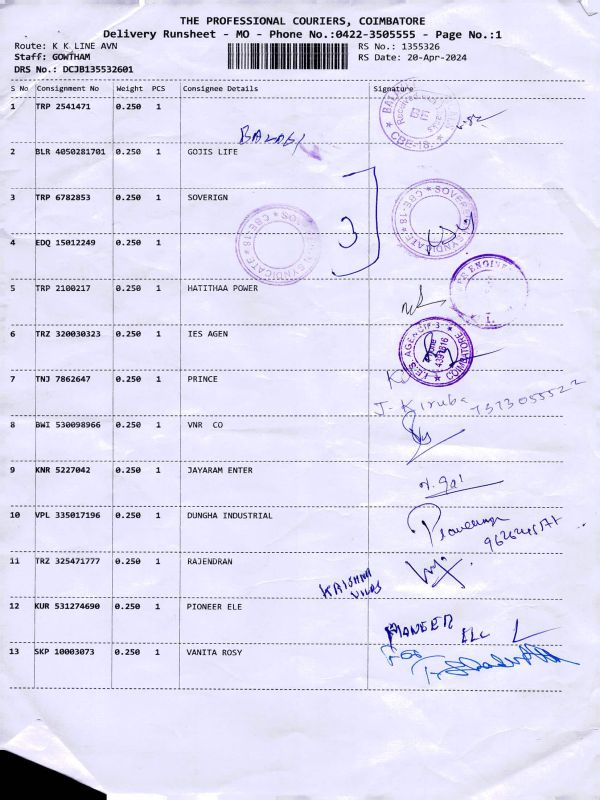 THE PROFESSIONAL COURIERS, COIMBATORE
Delivery Runsheet - MO - Phone No.:0422-3505555 - Page No.:1
Route: K K LINE AVN
RS No.: 1355326
Staff: GOWTHAM
RS Date: 20-Apr-2024
DRS No.: DCJB135532601
S No Consignment No Weight PCS Consignee Details Signature
1 TRP 2541471 0.250 1
BALAGI
CBE-18.
2 BLR 4050281701 0.250 1 GOJIS LIFE
3 TRP 6782853 0.250 1 SOVERIGN
3
SYNDICATE CBE-18
4 EDQ 15012249 0.250 1
5 TRP 2100217 0.250 1 HATITHAA POWER
6 TRZ 320030323 0.250 1 IES AGEN
COIMBATORE
7 TNJ 7862647 0.250 1 PRINCE
J. Kiruba 7373055522
8 BWI 530098966 0.250 1 VNR CO
9 KNR 5227042 0.250 1 JAYARAM ENTER
10 VPL 335017196 0.250 1 DUNGHA INDUSTRIAL
11 TRZ 325471777 0.250 1 RAJENDRAN
KRISHNA
12 KUR 531274690 0.250 1 PIONEER ELE
13 SKP 10003073 0.250 1 VANITA ROSY